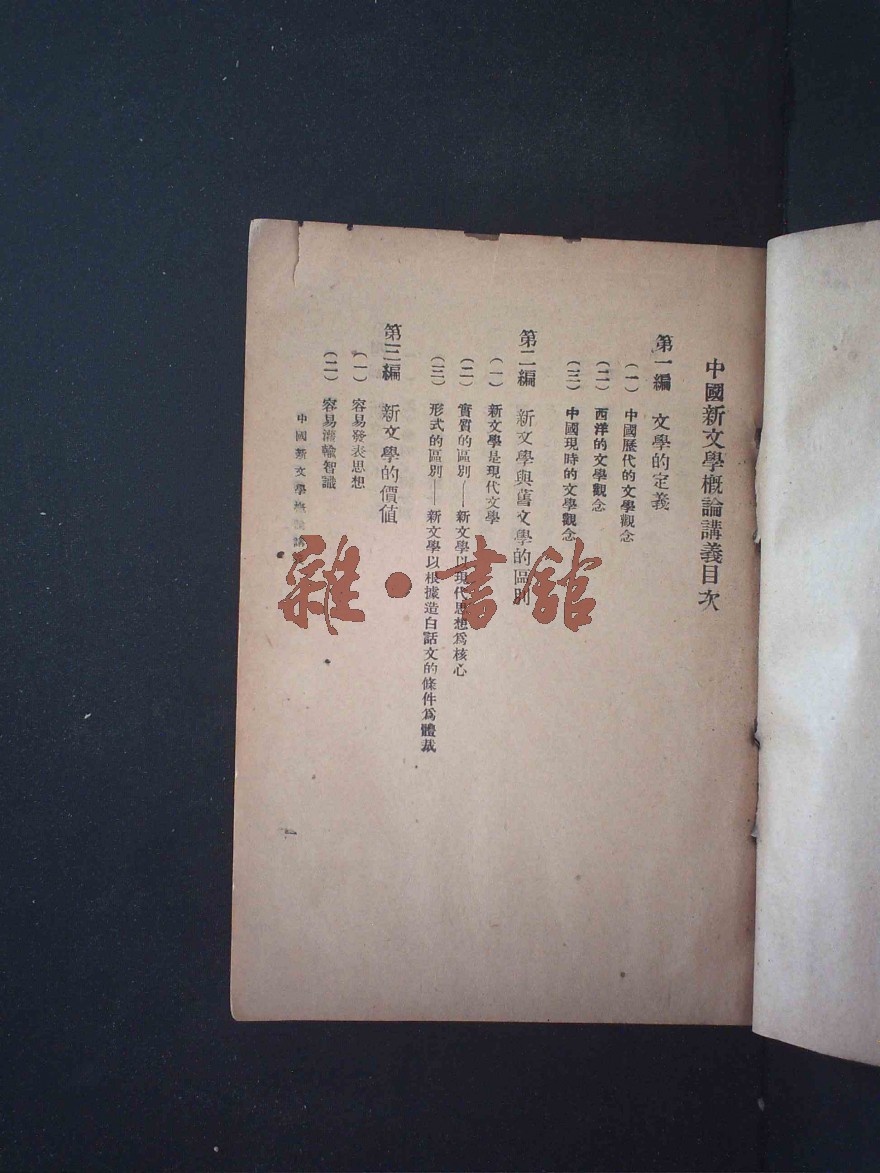 中國新文學概論講義目次
第一編　文學的定義
（一）　中國歷代的文學觀念
（二）　西洋的文學觀念
（三）　中國現時的文學觀念
第二編　新文學與舊文學的區別
（一）　新文學是現代文學
（二）　實質的區別——新文學以現代思想爲核心
（三）　形式的區別——新文學以根據造白話文的條件爲體裁
第三編　新文學的價值
（一）　容易發表思想
（二）　容易灌輸智識
中國新文學概論講
一
雜·書館